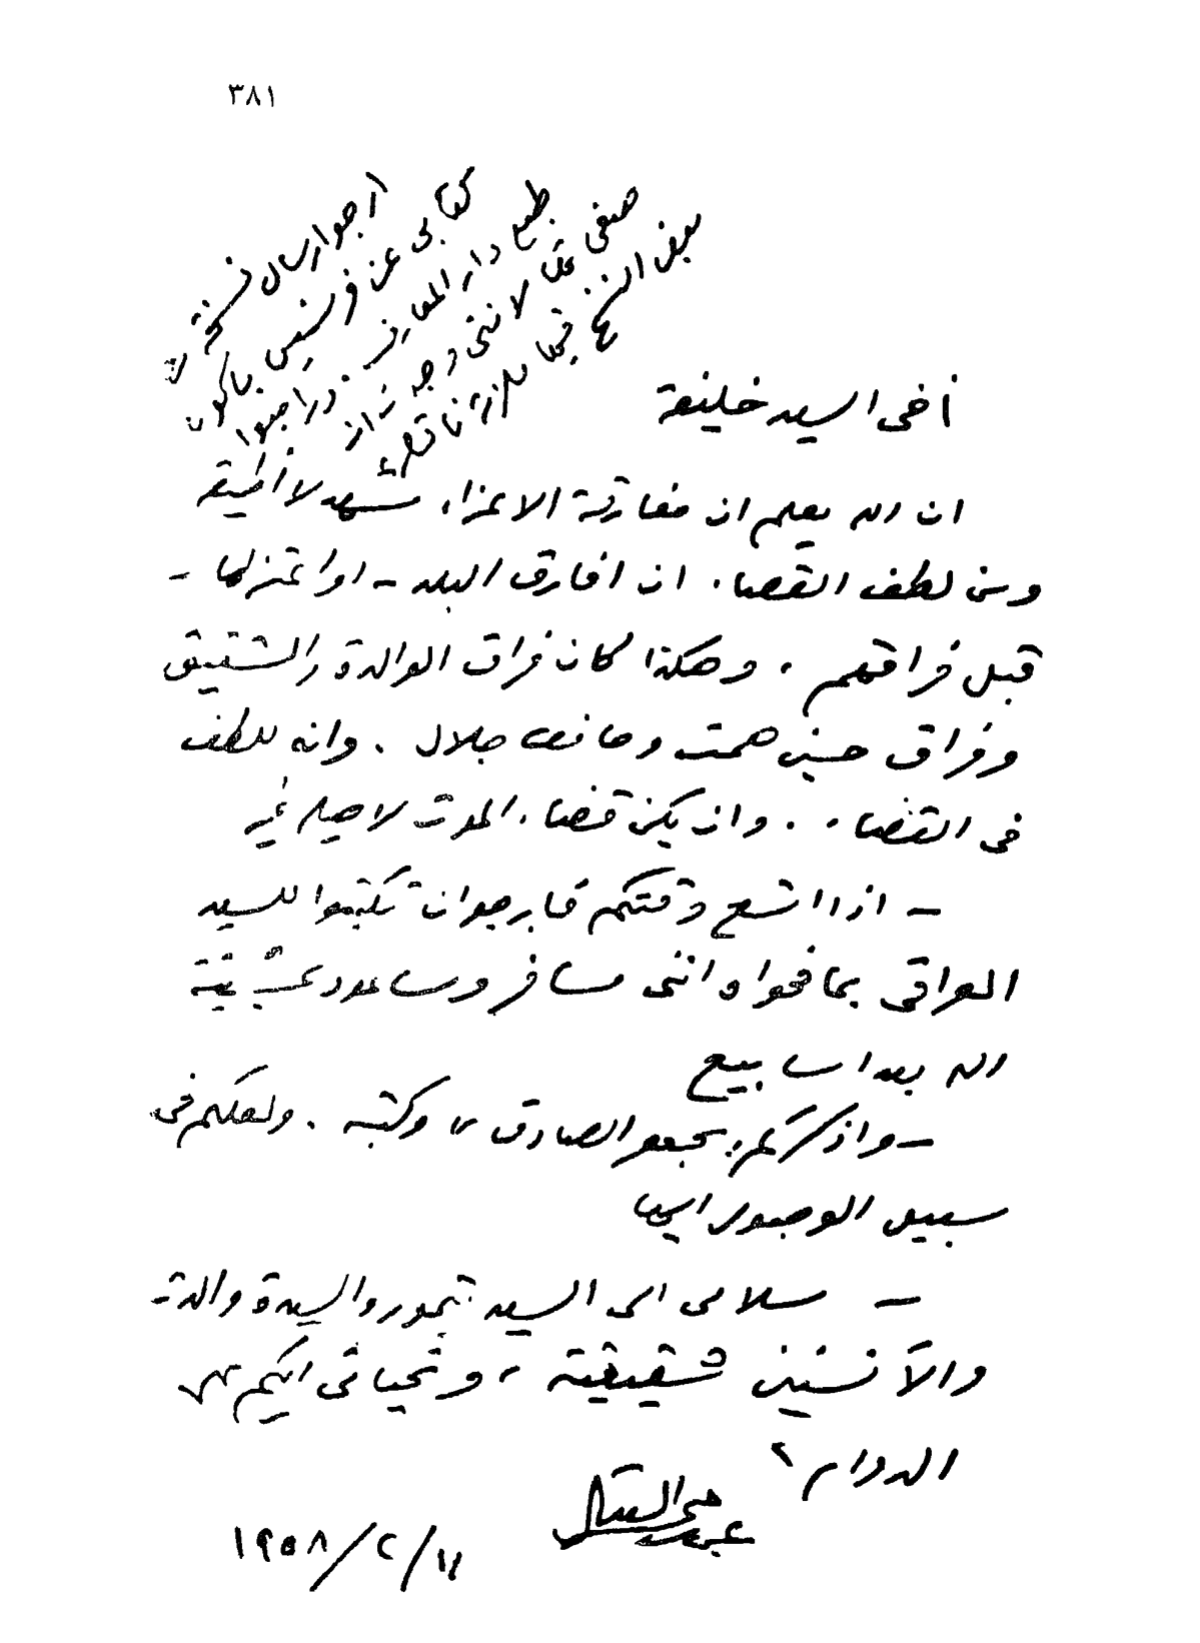 ٣٨١
ارجو ارسال نسخة من
كتابى عن فرنسيس باكون
طبع دار المعارف. وراجعوا
صفحاتها لاننى وجدت ان
بعض النسخ فيها ملازم ناقصة
أخى السيد خليفة
ان الله يعلم ان مفارقة الاعزاء مشهد لا أطيقه
ومن لطف القضاء ان افارق البلد - او اعتزلها -
قبل فراقهم. وهكذا كان فراق الوالدة والشقيق
وفراق حسين همت جلال. وانه للطف
فى القضاء. وان يكن قضاء الموت لا حيلة فيه
- اذا اتسع وقتكم فارجو ان تكتبوا للسيد
العراقى بما فحواه اننى مسافر وساعود بمشيئة
الله بعد اسابيع
- واذكركم بجعفر الصادق، وكتبه. ولعلكم فى
سبيل الوصول اليها
- سلامى الى السيد تيمور والسيدة والدته
والآنستين شقيقيته، وتحياتى اليكم على
الدوام
عباس محمود العقاد
١٩٥٨/٢/١١